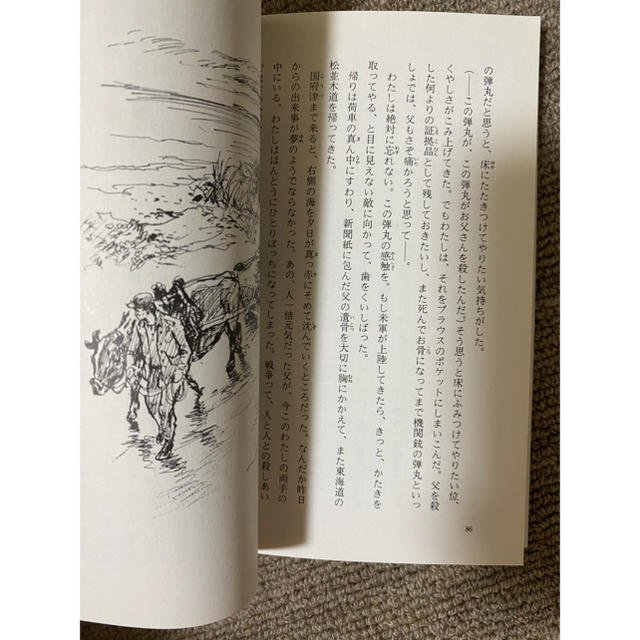 の弾丸だと思うと、床にたたきつけてやりたい気持ちがした。
（――この弾丸が、この弾丸がお父さんを殺したんだ。そう思うと床にふみつけてやりたい位、
くやしさがこみ上げてきた。でもわたしは、それをブラウスのポケットにしまいこんだ。父を殺
した何よりの証拠品として残しておきたいし、また死んでお骨になってまで機関銃の弾丸といっ
しょでは、父もさぞ痛かろうと思って――。
わたしは絶対に忘れない。この弾丸の感触を。もし米軍が上陸してきたら、きっと、かたきを
取ってやる、と目に見えない敵に向かって、歯をくいしばった。
帰りは荷車の真ん中にすわり、新聞紙に包んだ父の遺骨を大切に胸にかかえて、また東海道の
松並木道を帰ってきた。
国府津まで来ると、右側の海を夕日が真っ赤にそめて沈んでいくところだった。なんだか昨日
からの出来事が夢のようでならなかった。あの、人一倍元気だった父が、今このわたしの両手の
中にいる。わたしはほんとうにひとりぼっちになってしまった。戦争って、人と人との殺しあい
86